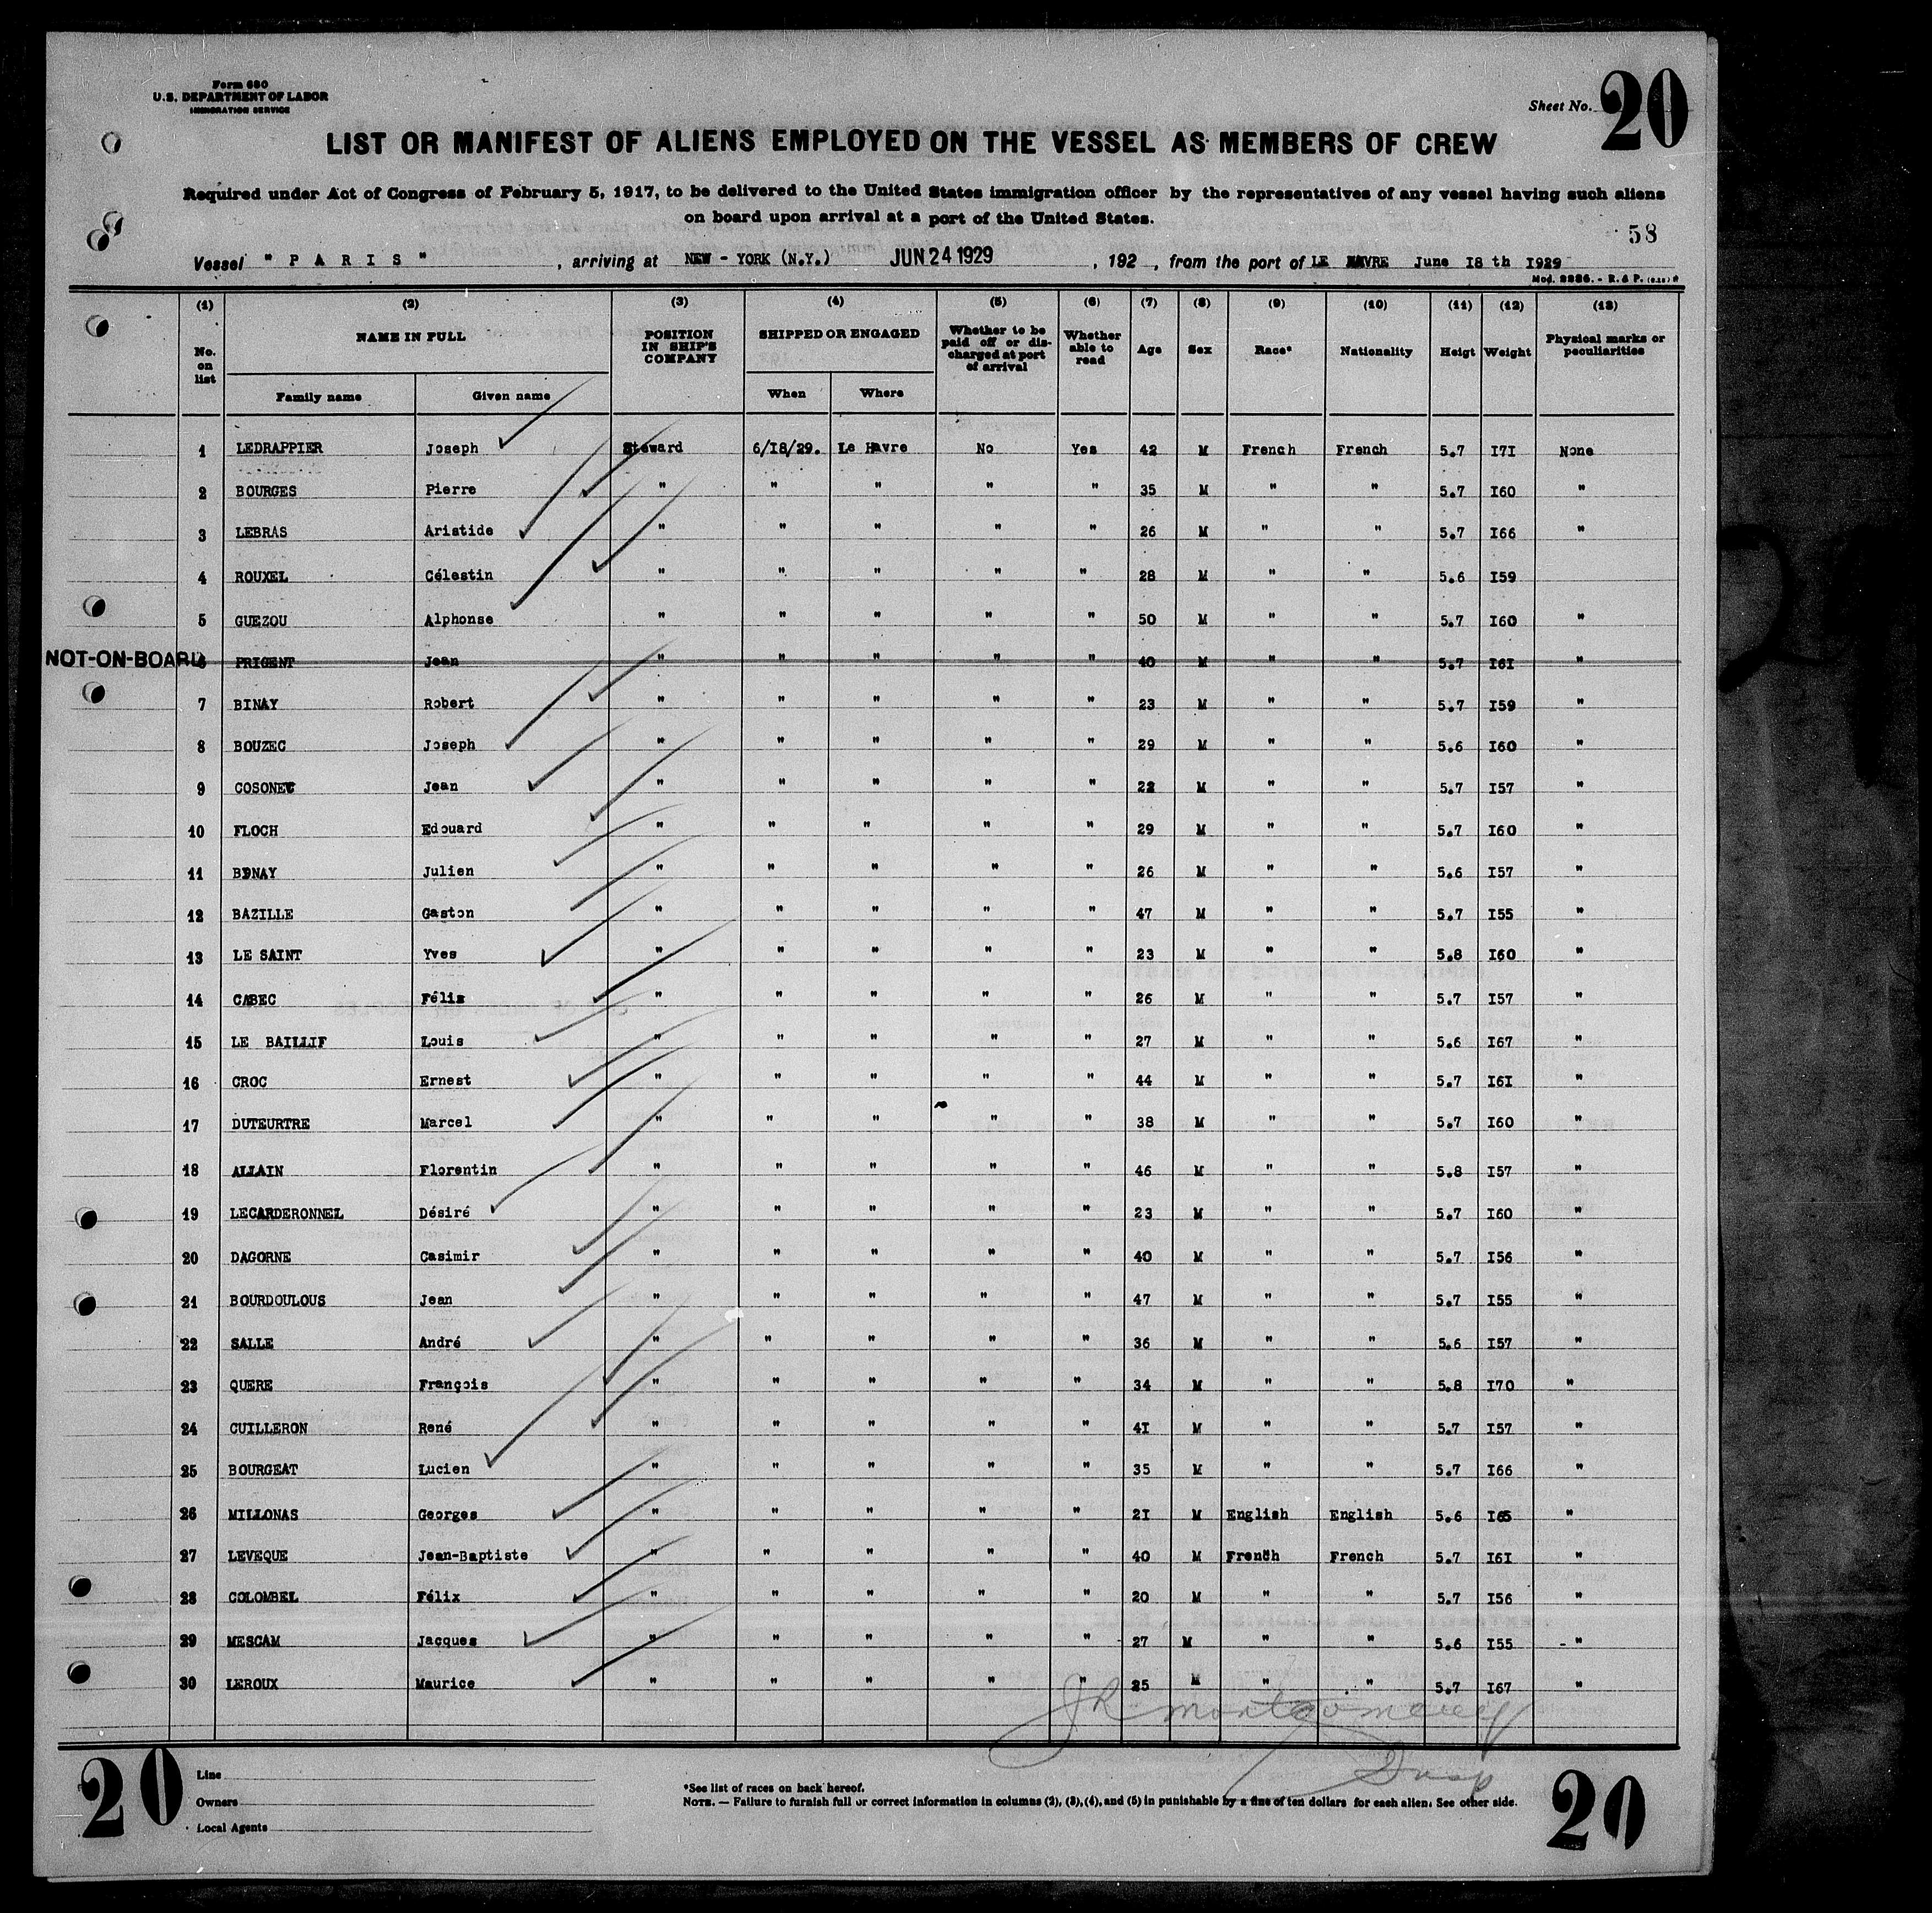 Form 680
U.S. DEPARTMENT OF LABOR
IMMIGRATION SERVICE
Sheet No. 20
LIST OR MANIFEST OF ALIENS EMPLOYED ON THE VESSEL AS MEMBERS OF CREW
Required under Act of Congress of February 5, 1917, to be delivered to the United States immigration officer by the representatives of any vessel having such aliens
on board upon arrival at a port of the United States.
58
Vessel "PARIS", arriving at NEW - YORK (N.Y.) JUN 24 1929, 192 , from the port of LE HAVRE June I8 th I929
Mod. 2286. - R. & P.
(1) (2) (3) (4) (5) (6) (7) (8) (9) (10) (11) (12) (13)
No. on list NAME IN FULL POSITION IN SHIP'S COMPANY SHIPPED OR ENGAGED Whether to be paid off or discharged at port of arrival Whether able to read Age Sex Race* Nationality Heigt Weight Physical marks or peculiarities
Family name Given name When Where
1 LEDRAPPIER Joseph Steward 6/I8/29. Le Havre No Yes 42 M French French 5.7 I7I None
2 BOURGES Pierre " " " " " 35 M " " 5.7 I60 "
3 LEBRAS Aristide " " " " " 26 M " " 5.7 I66 "
4 ROUXEL Célestin " " " " " 28 M " " 5.6 I59
5 GUEZOU Alphonse " " " " " 50 M " " 5.7 I60 "
NOT-ON-BOARD 6 PRIGENT Jean " " " " " 40 M " " 5.7 I6I "
7 BINAY Robert " " " " " 23 M " " 5.7 I59 "
8 BOUZEC Joseph " " " " " 29 M " " 5.6 I60 "
9 COSONEC Jean " " " " " 22 M " " 5.7 I57 "
10 FLOCH Edouard " " " " " 29 M " " 5.7 I60 "
11 BENAY Julien " " " " " 26 M " " 5.6 I57 "
12 BAZILLE Gaston " " " " " 47 M " " 5.7 I55 "
13 LE SAINT Yves " " " " " 23 M " " 5.8 I60 "
14 CABEC Félix " " " " " 26 M " " 5.7 I57 "
15 LE BAILLIF Louis " " " " " 27 M " " 5.6 I67 "
16 CROC Ernest " " " " " 44 M " " 5.7 I6I "
17 DUTEURTRE Marcel " " " " " 38 M " " 5.7 I60 "
18 ALLAIN Florentin " " " " " 46 M " " 5.8 I57 "
19 LECARDERONNEL Désiré " " " " " 23 M " " 5.7 I60 "
20 DAGORNE Casimir " " " " " 40 M " " 5.7 I56 "
21 BOURDOULOUS Jean " " " " " 47 M " " 5.7 I55 "
22 SALLE André " " " " " 36 M " " 5.6 I57 "
23 QUERE François " " " " " 34 M " " 5.8 I70 "
24 CUILLERON René " " " " " 4I M " " 5.7 I57 "
25 BOURGEAT Lucien " " " " " 35 M " " 5.7 I66 "
26 MILLONAS Georges " " " " " 2I M English English 5.6 I65 "
27 LEVEQUE Jean-Baptiste " " " " " 40 M French French 5.7 I6I "
28 COLOMBEL Félix " " " " " 20 M " " 5.7 I56 "
29 MESCAM Jacques " " " " " 27 M " " 5.6 I55 - "
30 LEROUX Maurice " " " " " 25 M " " 5.7 I67 "
JR Montgomery
Insp
20 20
Line
Owners
Local Agents
*See list of races on back hereof.
NOTE. — Failure to furnish full or correct information in columns (2), (3), (4), and (5) in punishable by a fine of ten dollars for each alien. See other side.